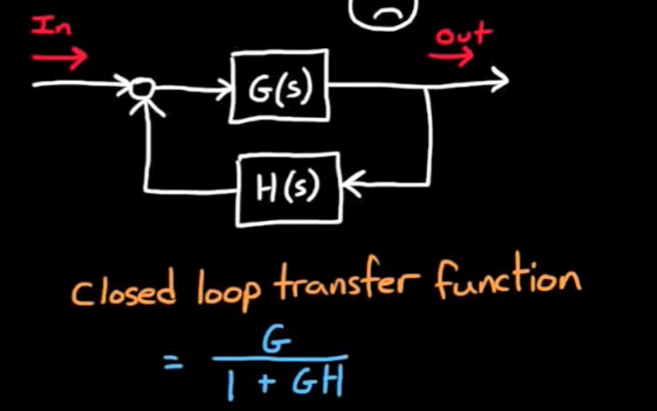 In
Out
G(s)
H(s)
closed loop transfer function
= G
1 + GH